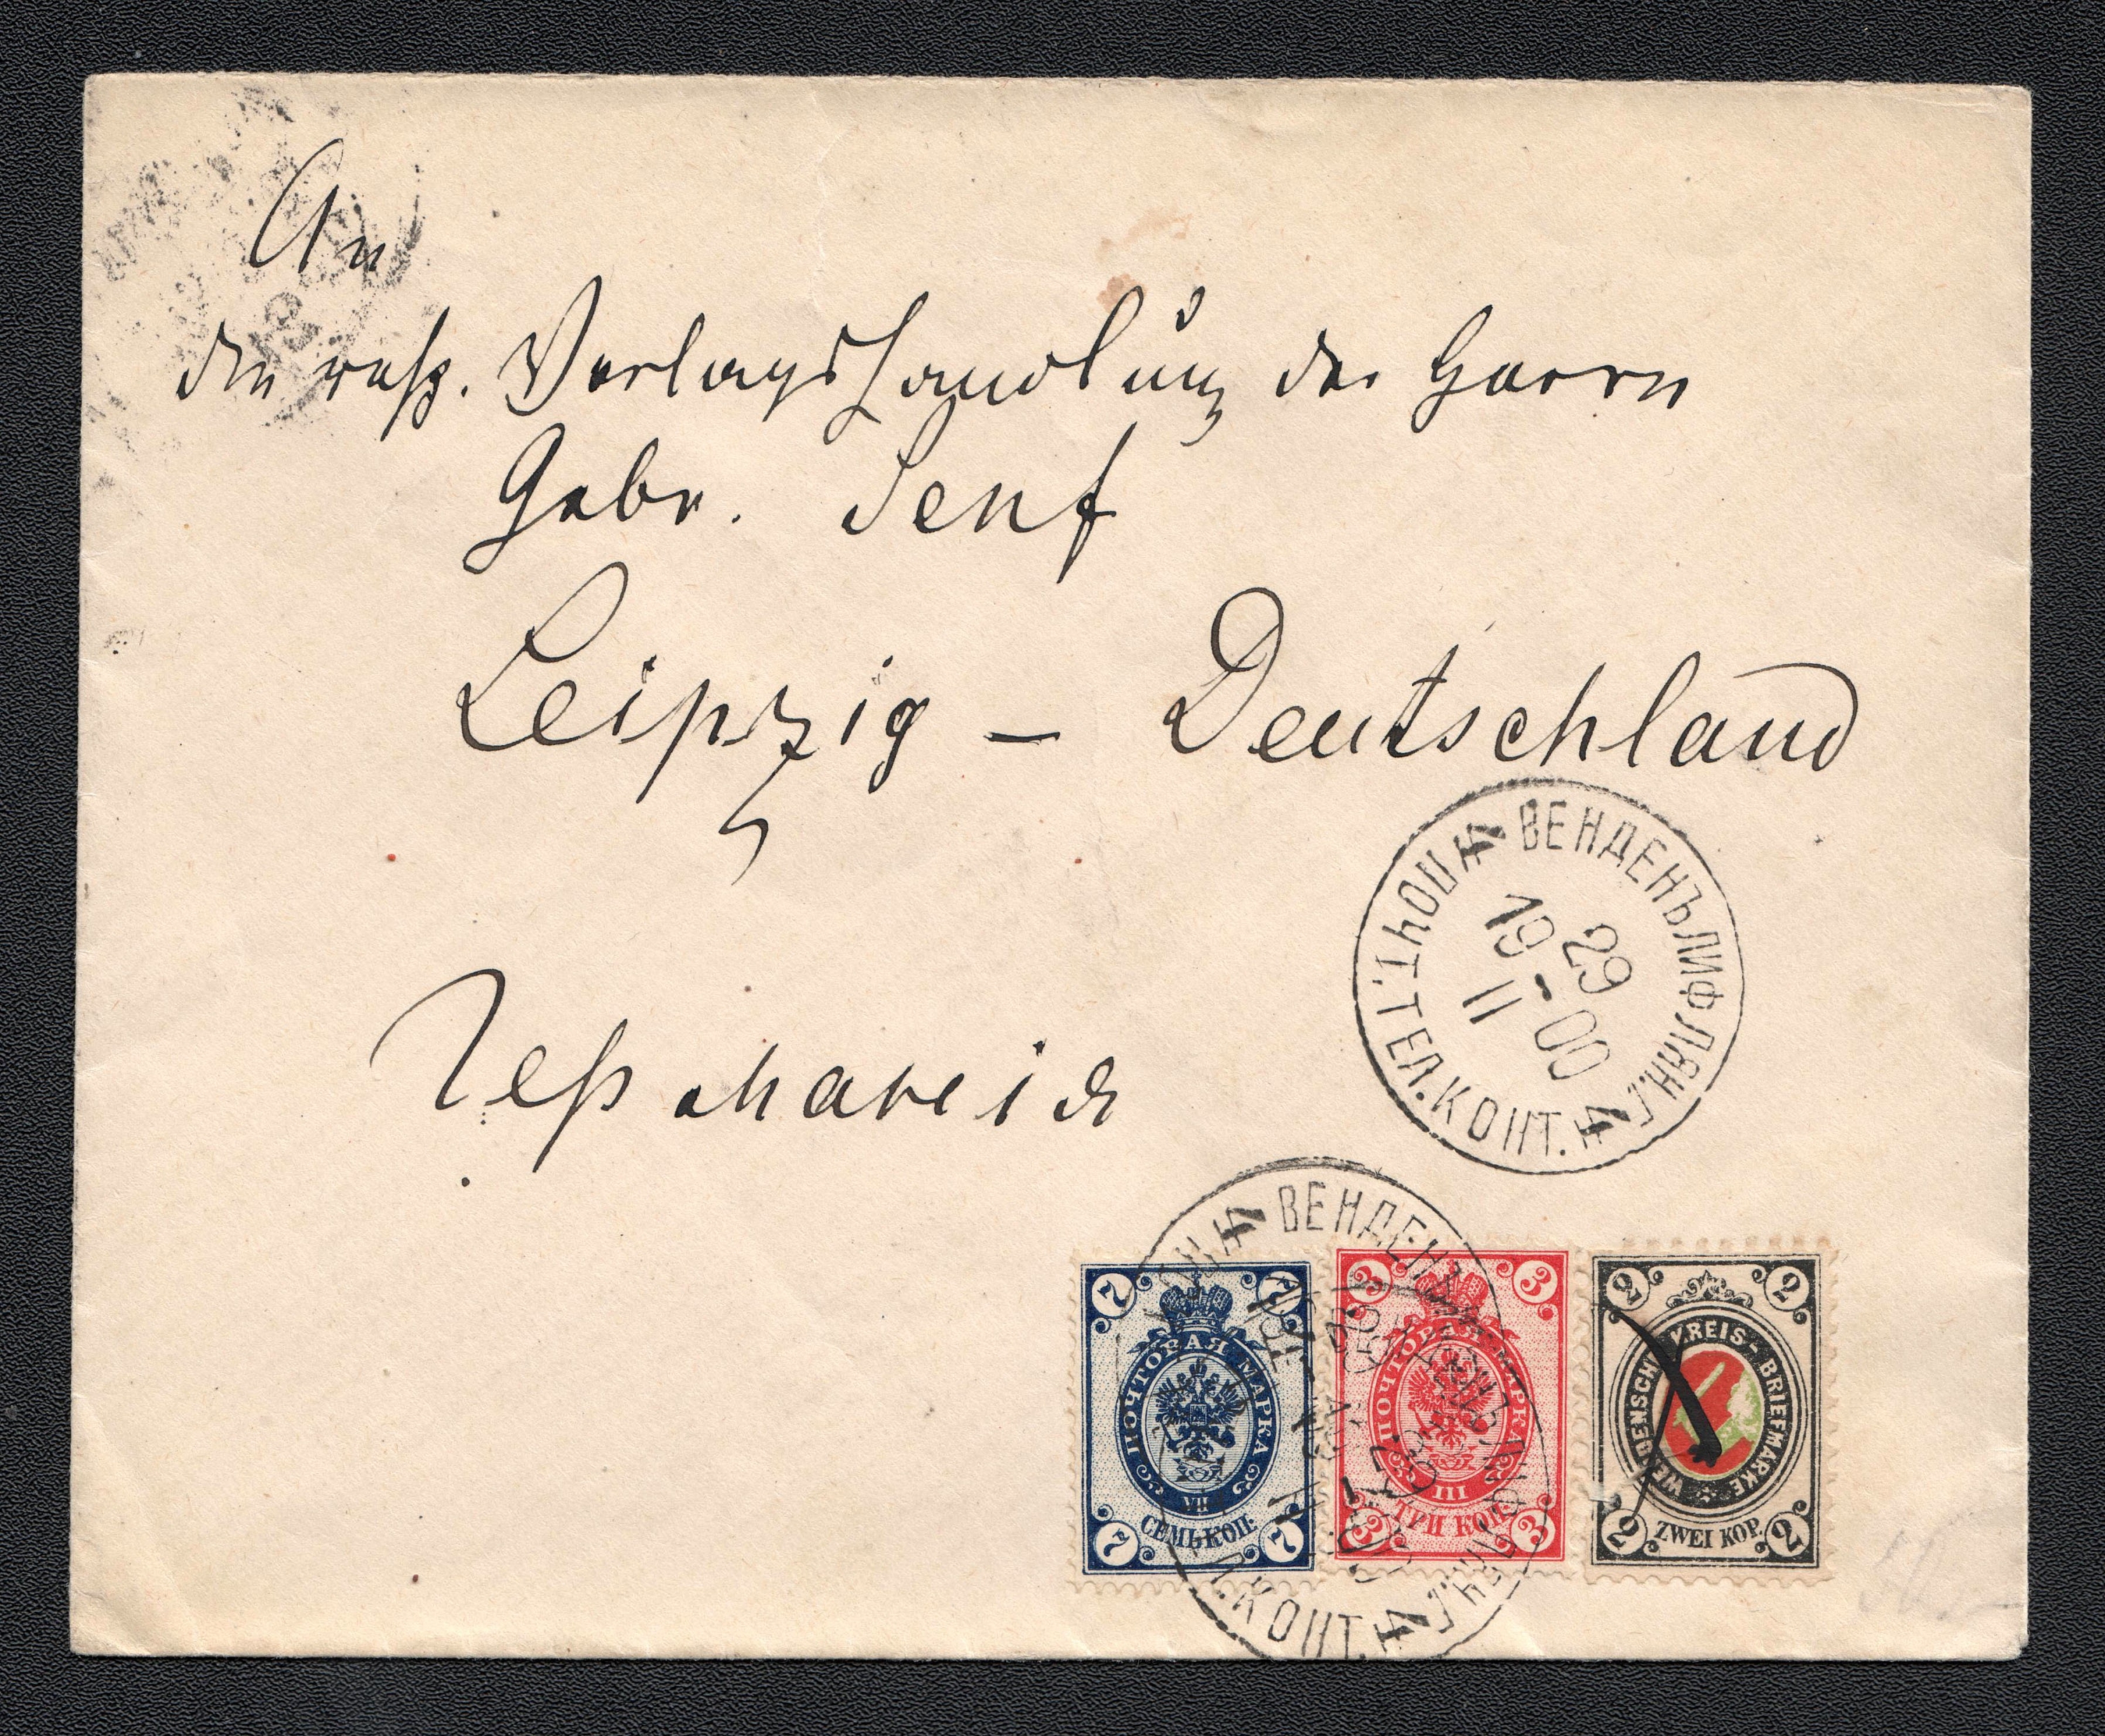 An
die resp. Verlagshandlung der Herrn
Gebr. Senf
Leipzig — Deutschland
Германія
ВЕНДЕНЪ ЛИФЛЯН.Г.
ПОЧТ.ТЕЛ.КОНТ.
29
19-00
II
4
4
ВЕНДЕНЪ ЛИФЛЯН.Г.
КОНТ.
4
4
7 7
ПОЧТОВАЯ МАРКА
VII
СЕМЬ КОП.
7 7
3 3
ПОЧТОВАЯ МАРКА
III
ТРИ КОП.
3 3
2 2
WENDENSCHE KREIS-BRIEFMARKE
ZWEI KOP.
2 2